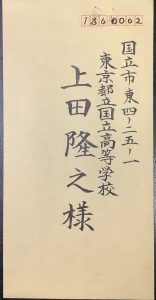 1860002
国立市東四ー二五ー一
東京都立国立高等学校
上田隆之様